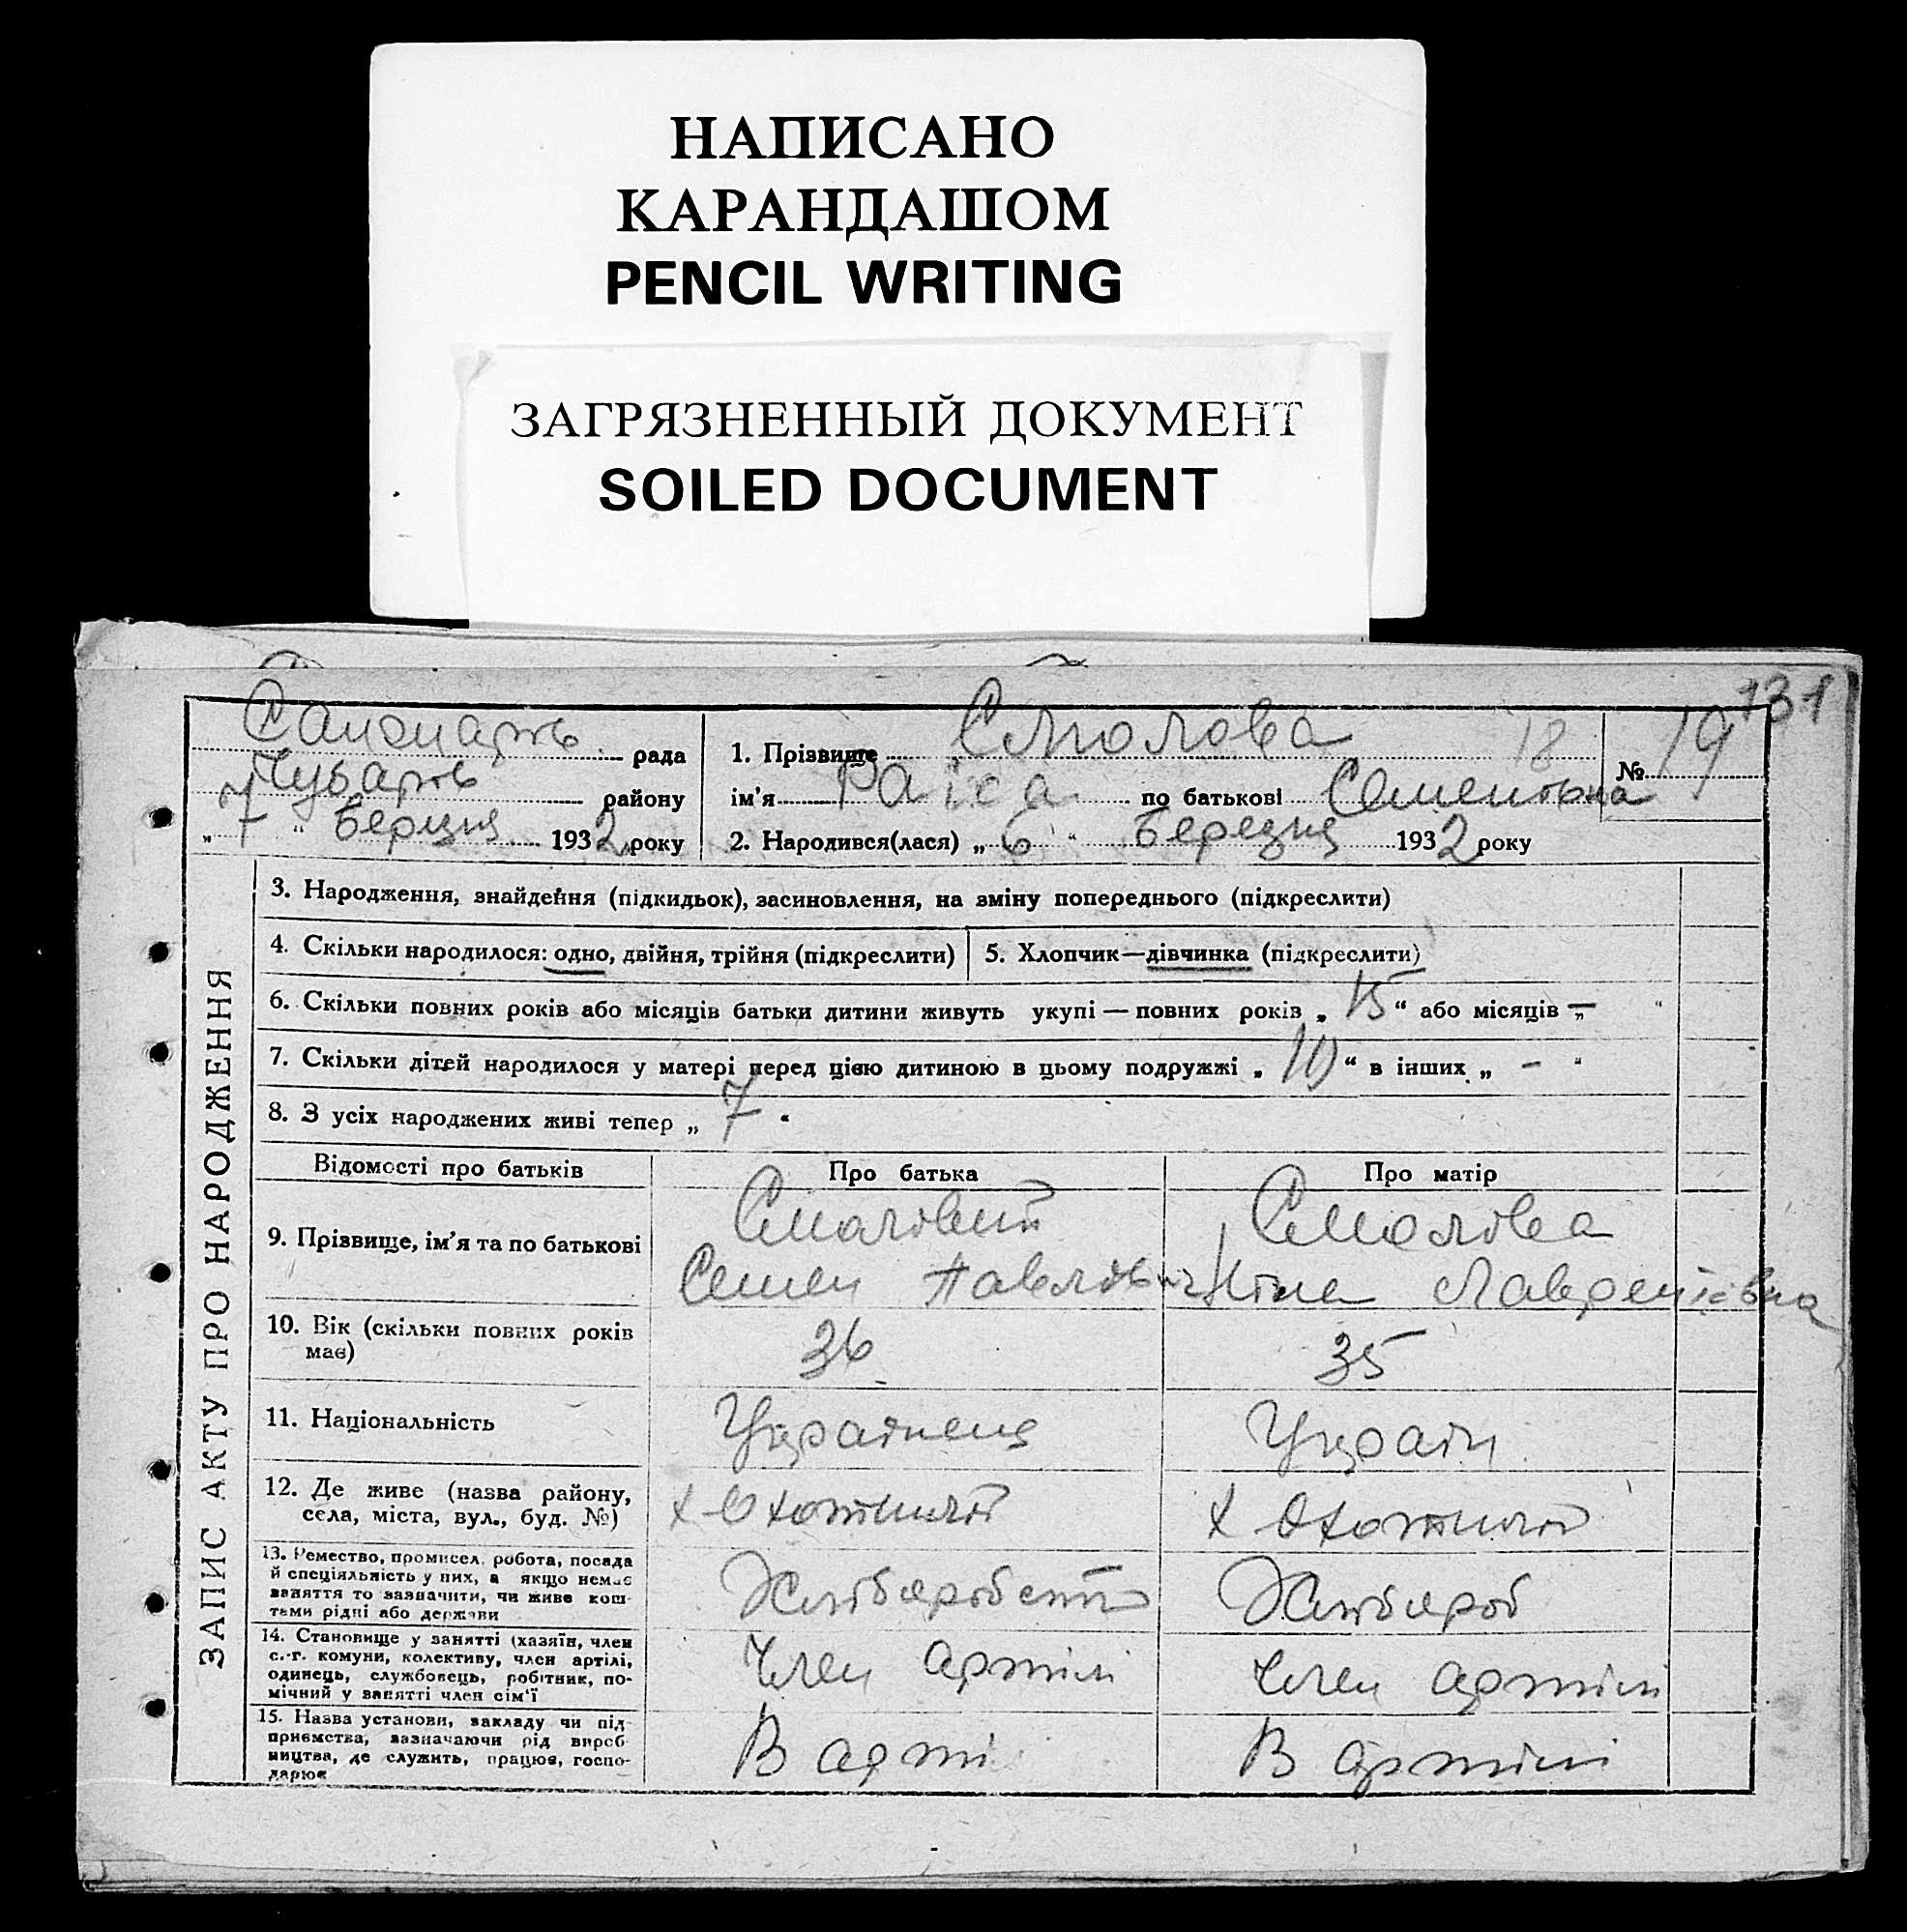 НАПИСАНО
КАРАНДАШОМ
PENCIL WRITING
ЗАГРЯЗНЕННЫЙ ДОКУМЕНТ
SOILED DOCUMENT
131
рада
Чубарів району
„ 7 “ Березня 1932 року
1. Прізвище 18
№ 19
ім'я Раїса по батькові Семенівна
2. Народився(лася) „ 6 “ Березня 1932 року
ЗАПИС АКТУ ПРО НАРОДЖЕННЯ
3. Народження, знайдення (підкидьок), засиновлення, на зміну попереднього (підкреслити)
4. Скільки народилося: одно, двійня, трійня (підкреслити) 5. Хлопчик—дівчинка (підкреслити)
6. Скільки повних років або місяців батьки дитини живуть укупі — повних років „ 15 “ або місяців „ — “
7. Скільки дітей народилося у матері перед цією дитиною в цьому подружжі „ 10 “ в інших „ — “
8. З усіх народжених живі тепер „ 7 “
Відомості про батьків Про батька Про матір
9. Прізвище, ім'я та по батькові
Смоловий Смолова
Семен Павлович Ніна Лаврентіївна
10. Вік (скільки повних років
має)
36 35
11. Національність Українець Україн
12. Де живе (назва району,
села, міста, вул., буд. №)
13. Ремество, промисел, робота, посада
й спеціяльність у них, а якщо немає
заняття то зазначити, чи живе кош-
тами рідні або держави
Хлібороб
14. Становище у занятті (хазяїн, член
с.-г. комуни, колективу, член артілі,
одинець, службовець, робітник, по-
мічний у занятті член сім'ї
Член артілі Член артілі
15. Назва установи, закладу чи під-
приємства, зазначаючи рід вироб-
ництва, де служить, працює, госпо-
дарює
В арті В артілі